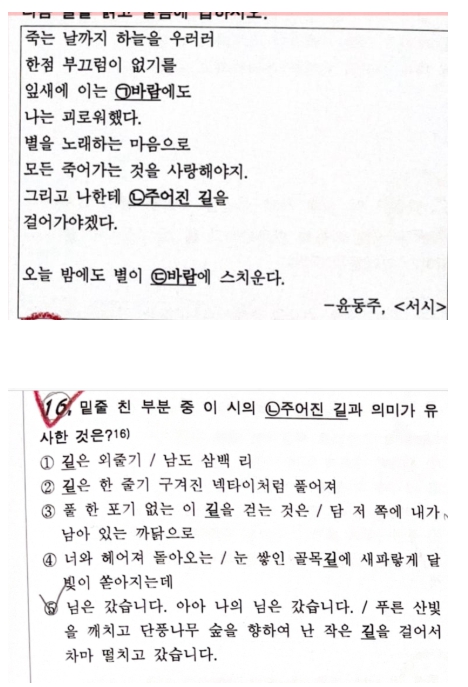 죽는 날까지 하늘을 우러러
한점 부끄럼이 없기를
잎새에 이는 ㉠바람에도
나는 괴로워했다.
별을 노래하는 마음으로
모든 죽어가는 것을 사랑해야지.
그리고 나한테 ㉡주어진 길을
걸어가야겠다.
오늘 밤에도 별이 ㉢바람에 스치운다.
-윤동주, <서시>
16. 밑줄 친 부분 중 이 시의 ㉡주어진 길과 의미가 유
사한 것은?16)
① 길은 외줄기 / 남도 삼백 리
② 길은 한 줄기 구겨진 넥타이처럼 풀어져
③ 풀 한 포기 없는 이 길을 걷는 것은 / 담 저 쪽에 내가
남아 있는 까닭으로
④ 너와 헤어져 돌아오는 / 눈 쌓인 골목길에 새파랗게 달
빛이 쏟아지는데
⑤ 님은 갔습니다. 아아 나의 님은 갔습니다. / 푸른 산빛
을 깨치고 단풍나무 숲을 향하여 난 작은 길을 걸어서
차마 떨치고 갔습니다.